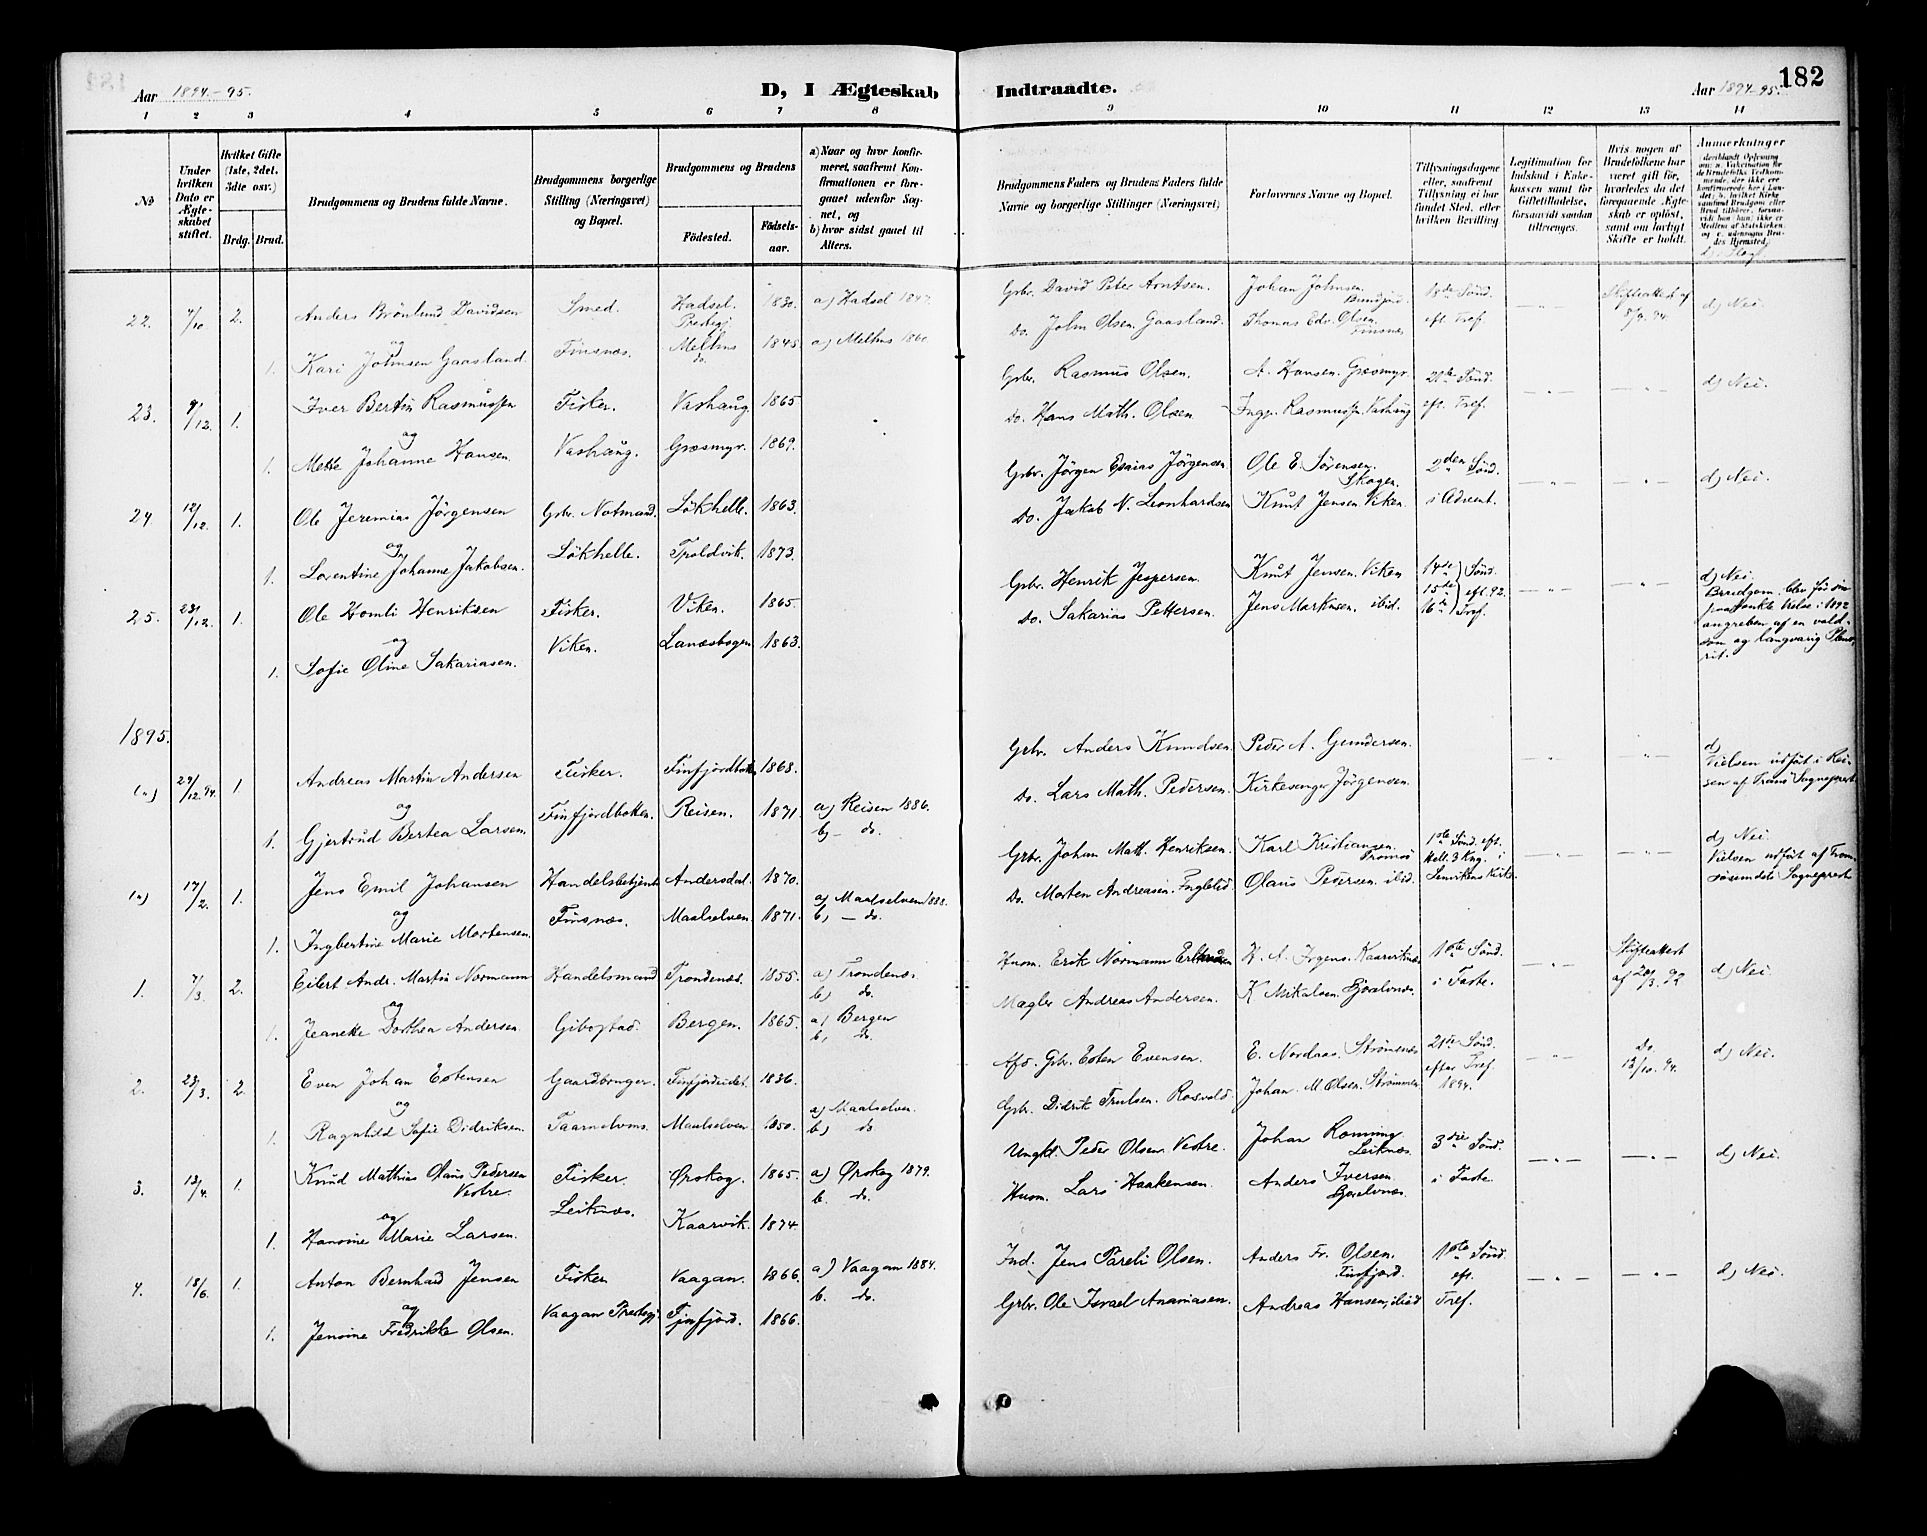 Aar 1894.-95.
D, I Ægteskab Indtraadte.
Aar 1894-95. 182
1 2 3 4 5 6 7 8 9 10 11 12 13 14
No
Under hvilken Dato er Ægteskabet stiftet.
Hvilket Gifte (1ste, 2det, 3dte osv.)
Brdg. Brud.
Brudgommens og Brudens fulde Navne.
Brudgommens borgerlige Stilling (Næringsvei) og Bopæl.
Brudgommens og Brudens
Födested. Födsels-aar.
a) Naar og hvor konfirmeret, saafremt Konfirmationen er foregaaet udenfor Sognet, og
b) hvor sidst gaaet til Alters.
Brudgommens Faders og Brudens Faders fulde Navne og borgerlige Stillinger (Næringsvei)
Forlovernes Navne og Bopæl.
Tillysningsdagene eller, saafremt Tillysning ei har fundet Sted, efter hvilken Bevilling
Legitimation for Indskud i Enkekassen samt for Giftetilladelse, forsaavidt saadan tiltrænges.
Hvis nogen af Brudefolkene har været gift för, hvorledes da det foregaaende Ægteskab er oplöst, samt om lovligt Skifte er holdt.
Anmærkninger
22. 7/10 2. Anders Brönlund Davidsen Smed. Hadsel Prestegj. 1830. a) Hadsel 1847. Grbr. David Peter Arntsen. Johan Johnsen 18de Sönd. Skifteattest af d) Nei.
og
1. Kari Johnsen Gaasland. Finsnæs. Melhus do. 1845 a) Melhus 1860. Do. John Olsen Gaasland. Thomas Edv. Olsen Finsnæs eft. Tref.
23. 9/12. 1. Iver Bertin Rasmussen Fisker. Vashaug 1865 Grbr. Rasmus Olsen. A. Hansen. Græsmyr. 21de Sönd. d) Nei.
og
1. Mette Johanne Hansen Vashaug. Græsmyr. 1869. Do. Hans Math. Olsen Ingv. Rasmussen, Vashaug eft. Tref.
24 12/12. 1. Ole Jeremias Jörgensen Grbr. Notmand. Lökhelle. 1863. Grbr. Jörgen Esaias Jörgensen Ole E. Sörensen. Skogen. 2den Sönd. d) Nei.
og
1. Lorentine Johanne Jakobsen. Lökhelle. Troldvik. 1873. Do. Jakob N. Leonhardsen Knut Jensen Viken. i Advent.
25. 23/12. 1. Ole Homli Henriksen Fisker. Viken. 1865. Grbr. Henrik Jespersen. Knut Jensen. Viken 14de 15de 16de Sönd. eft. 92. Tref. d) Nei
og
1. Sofie Oline Sakariasen. Viken. Lanæsbogen 1863. Do. Sakarias Pettersen. Jens Markusen. ibid. Brudgom. blev
i 1892 angreben af en voldsom og langvarig
1895.
(a) 29/12.94. 1 Andreas Martin Andersen Fisker. Finfjordbotten 1868. Grbr. Anders Knudsen. Peder A. Gundersen. d) Vielsen udfört i Reisen af Sogneprest
og
1. Gjertrud Bertea Larsen. Finfjordbotten. Reisen. 1871. a) Reisen 1886. b) - do. Do. Lars Math. Pedersen. Kirkesanger Jörgensen.
(a) 17/2. 1. Jens Emil Johansen Handelsbetjent Andersdal. 1870. Grbr. Johan Math. Henriksen. Karl Kristiansen. Tromsö 1ste Sönd. eft. Hell. 3 Kng. i Lenvikens Kirke d) Nei Vielsen udfört af Tromsösundets Sogneprest
og
1. Ingbertine Marie Mortensen. Finsnæs. Maalselven. 1871. a) Maalselven 1888. b) - do. Do. Morten Andreasen. Olaus Pedersen. ibid.
1. 7/3. 2. Eilert Andr. Martin Normann Handelsmand Trondenæs. 1855. a) Trondenæs b) do. Husm. Erik Normann H. A. Irgens. 1ste Sönd. Skifteattest af 20/3. 92 d) Nei.
og
1. Jeanette Dorthea Andersen. Gibostad. Bergen. 1865. a) Bergen b) do. Mægler Andreas Andersen. K Mikalsen. Gjövelnæs. i Faste.
2. 23/3. 2. Even Johan Estensen Gaardbruger. Finfjordeidet. 1836. Afd. Grbr. Esten Evensen. E. Nordaas. Strömenæs 21de Sönd. Do. 13/10. 94. d) Nei.
og
1. Ragnhild Sofie Didriksen. Taarnelvms. Maalselven 1850. a) Maalselven. b) do Grbr. Didrik Trulsen. Rosvold. Johan M. Olsen. Strömmen. efter Tref. 1894.
3. 13/4. 1. Knud Mathias Olaus Pedersen Vestre. Fisker. Örskog. 1865. a) Örskog 1879. b. do. Ungkt. Peder Olsen Vestre. Johan Ronning. Leiknæs. 3die Sönd. d) Nei.
og
1. Hansine Marie Larsen. Leiknæs. Kaarvik. 1874. Husm. Lars Haakensen. Anders Iversen. Gjövelvnæs. i Faste
4. 18/6. 1. Anton Bernhard Jensen Fisker Vaagan. 1866. a) Vaagan 1884. b. do. Ind. Jens Pareli Olsen. Anders Fr. Olsen. Finfjord. 1ste Sönd. eft. d) Nei.
og
1. Jensine Fredrikke Olsen. Vaagan Prestegj. Finfjord. 1866. Grbr. Ole Israel Ananiasen. Andreas Hansen, ibid Tref.